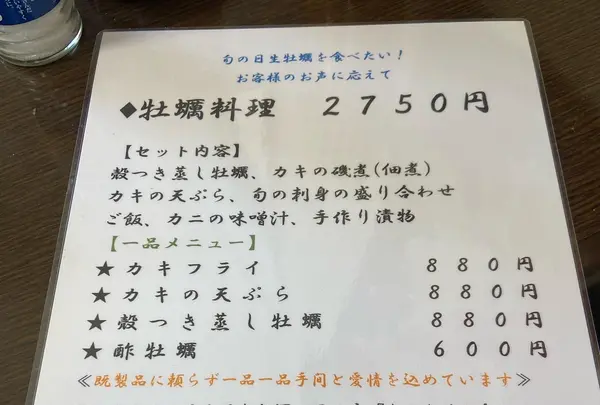 旬の日生牡蠣を食べたい!
お客様のお声に応えて
◆牡蠣料理 2750円
【セット内容】
殻つき蒸し牡蠣、カキの磯煮(佃煮)
カキの天ぷら、旬の刺身の盛り合わせ
ご飯、カニの味噌汁、手作り漬物
【一品メニュー】
★カキフライ 880円
★カキの天ぷら 880円
★殻つき蒸し牡蠣 880円
★酢牡蠣 600円
≪既製品に頼らず一品一品手間と愛情を込めています≫